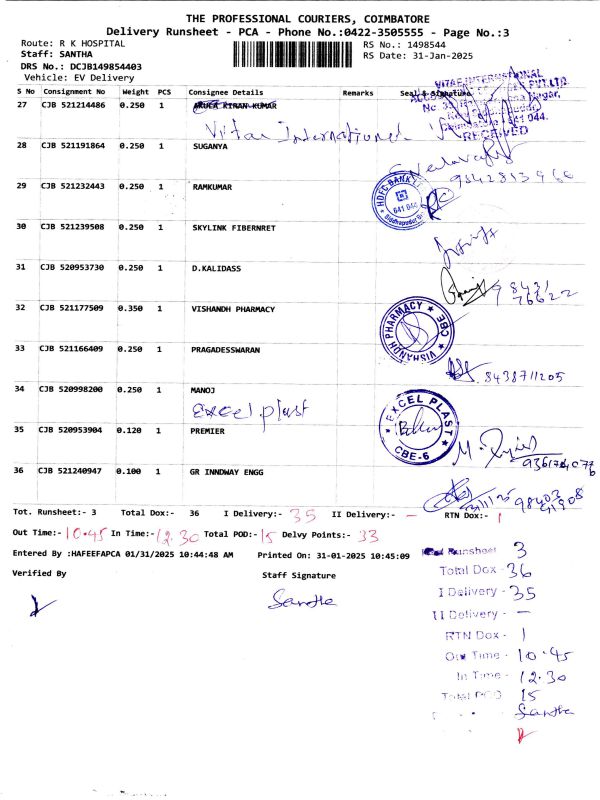 THE PROFESSIONAL COURIERS, COIMBATORE
Delivery Runsheet - PCA - Phone No.:0422-3505555 - Page No.:3
Route: R K HOSPITAL
Staff: SANTHA
DRS No.: DCJB149854403
Vehicle: EV Delivery
RS No.: 1498544
RS Date: 31-Jan-2025
S No Consignment No Weight PCS Consignee Details Remarks Seal & Signature
27 CJB 521214486 0.250 1 KIRAN KUMAR
Vitar International
VITAR INTERNATIONAL
PVT.LTD.
641 044.
RECEIVED
28 CJB 521191864 0.250 1 SUGANYA
29 CJB 521232443 0.250 1 RAMKUMAR
HDFC BANK
641 044
30 CJB 521239508 0.250 1 SKYLINK FIBERNRET
31 CJB 520953730 0.250 1 D.KALIDASS
98431
76622
32 CJB 521177509 0.350 1 VISHANDH PHARMACY
VISHANDH PHARMACY CBE
33 CJB 521166409 0.250 1 PRAGADESSWARAN
8438711205
34 CJB 520998200 0.250 1 MANOJ
Excel plast
EXCEL PLAST
CBE-6
35 CJB 520953904 0.120 1 PREMIER
36 CJB 521240947 0.100 1 GR INNDWAY ENGG
Tot. Runsheet:- 3 Total Dox:- 36 I Delivery:- 35 II Delivery:- — RTN Dox:- 1
Out Time:- 10.45 In Time:- 12.30 Total POD:- 15 Delvy Points:- 33
Entered By :HAFEEFAPCA 01/31/2025 10:44:48 AM Printed On: 31-01-2025 10:45:09
Verified By Staff Signature
Santha
Runsheet 3
Total Dox - 36
I Delivery - 35
II Delivery - —
RTN Dox - 1
Out Time - 10.45
In Time - 12.30
Total POD 15
Santha